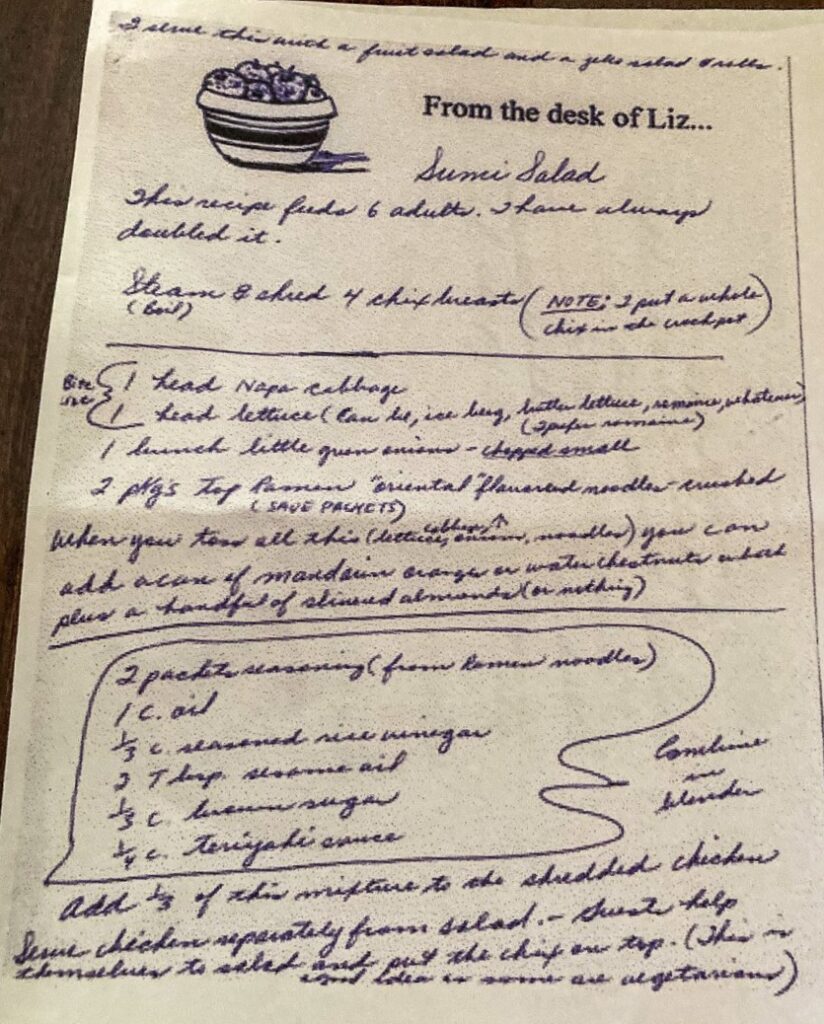 I serve this with a fruit salad and a jello salad & rolls.
From the desk of Liz...
Sumi Salad
This recipe feeds 6 adults. I have always
doubled it.
Steam & shred 4 chix breasts (NOTE: I put a whole
(Boil)
chix in the crockpot)
Bite
size
1 head Napa cabbage
1 head lettuce (can be, ice berg, butter lettuce, romaine, whatever)
(I prefer romaine)
1 bunch little green onions - chopped small
2 pkg's Top Ramen "oriental" flavored noodles - crushed
(SAVE PACKETS)
cabbage
When you toss all this (lettuce, onions, noodles) you can
add a can of mandarin orange or water chestnuts or both
plus a handful of slivered almonds (or nothing)
2 packets seasoning (from Ramen noodles)
1 c. oil
1/3 c. seasoned rice vinegar
2 Tbsp. sesame oil
1/3 c. brown sugar
1/4 c. teriyaki sauce
Combine
in
blender
Add 1/3 of this mixture to the shredded chicken
Serve chicken separately from salad. - Guests help
themselves to salad and put the chix on top. (This is
good idea as some are vegetarians)